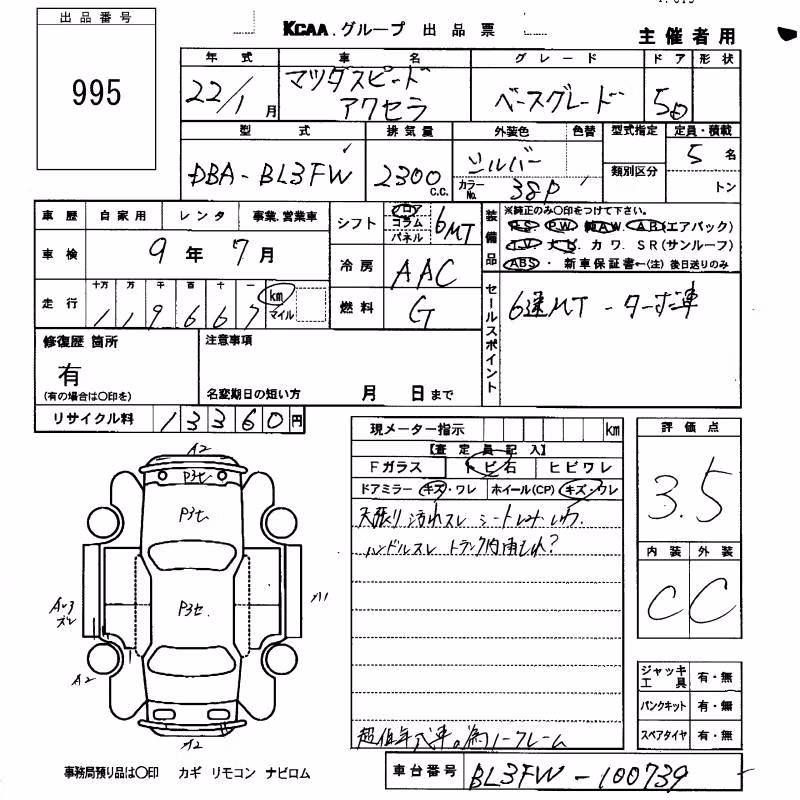 出品番号
995
KCAA.グループ 出品票
主催者用
年式 車名 グレード ドア 形状
22/1月 マツダスピード アクセラ ベースグレード 5D
型式 排気量 外装色 色替 型式指定 定員・積載
DBA-BL3FW 2300c.c. シルバー
カラーNo. 38P
類別区分
5名
トン
車歴 自家用 レンタ 事業.営業車
車検 9年7月
走行 十万 万 千 百 十 一
119667 km マイル
シフト フロア コラム パネル 6MT
冷房 AAC
燃料 G
装備品
※純正のみ○印をつけて下さい。
P.S P.W A.W A.B(エアバック)
T.V ナビ カワ. SR(サンルーフ)
ABS・ 新車保証書←(注)後日送りのみ
セールスポイント
6速MT -ターボ車
修復歴 箇所
有
(有の場合は○印を)
注意事項
名変期日の短い方 月 日まで
リサイクル料 13360円
現メーター指示 km
【査定員記入】
Fガラス トビ石 ヒビワレ
ドアミラー キズ・ワレ ホイール(CP) キズ・ワレ
天張り汚れスレ シート
ハンドルスレ トランク内雨もれ?
超低年式車。為ノークレーム
評価点
3.5
内装 外装
C C
ジャッキ工具 有・無
パンクキット 有・無
スペアタイヤ 有・無
A2
P3セ
P3セ
P3セ.
A1
A2
A2
事務局預り品は○印 カギ リモコン ナビロム
車台番号 BL3FW-100739